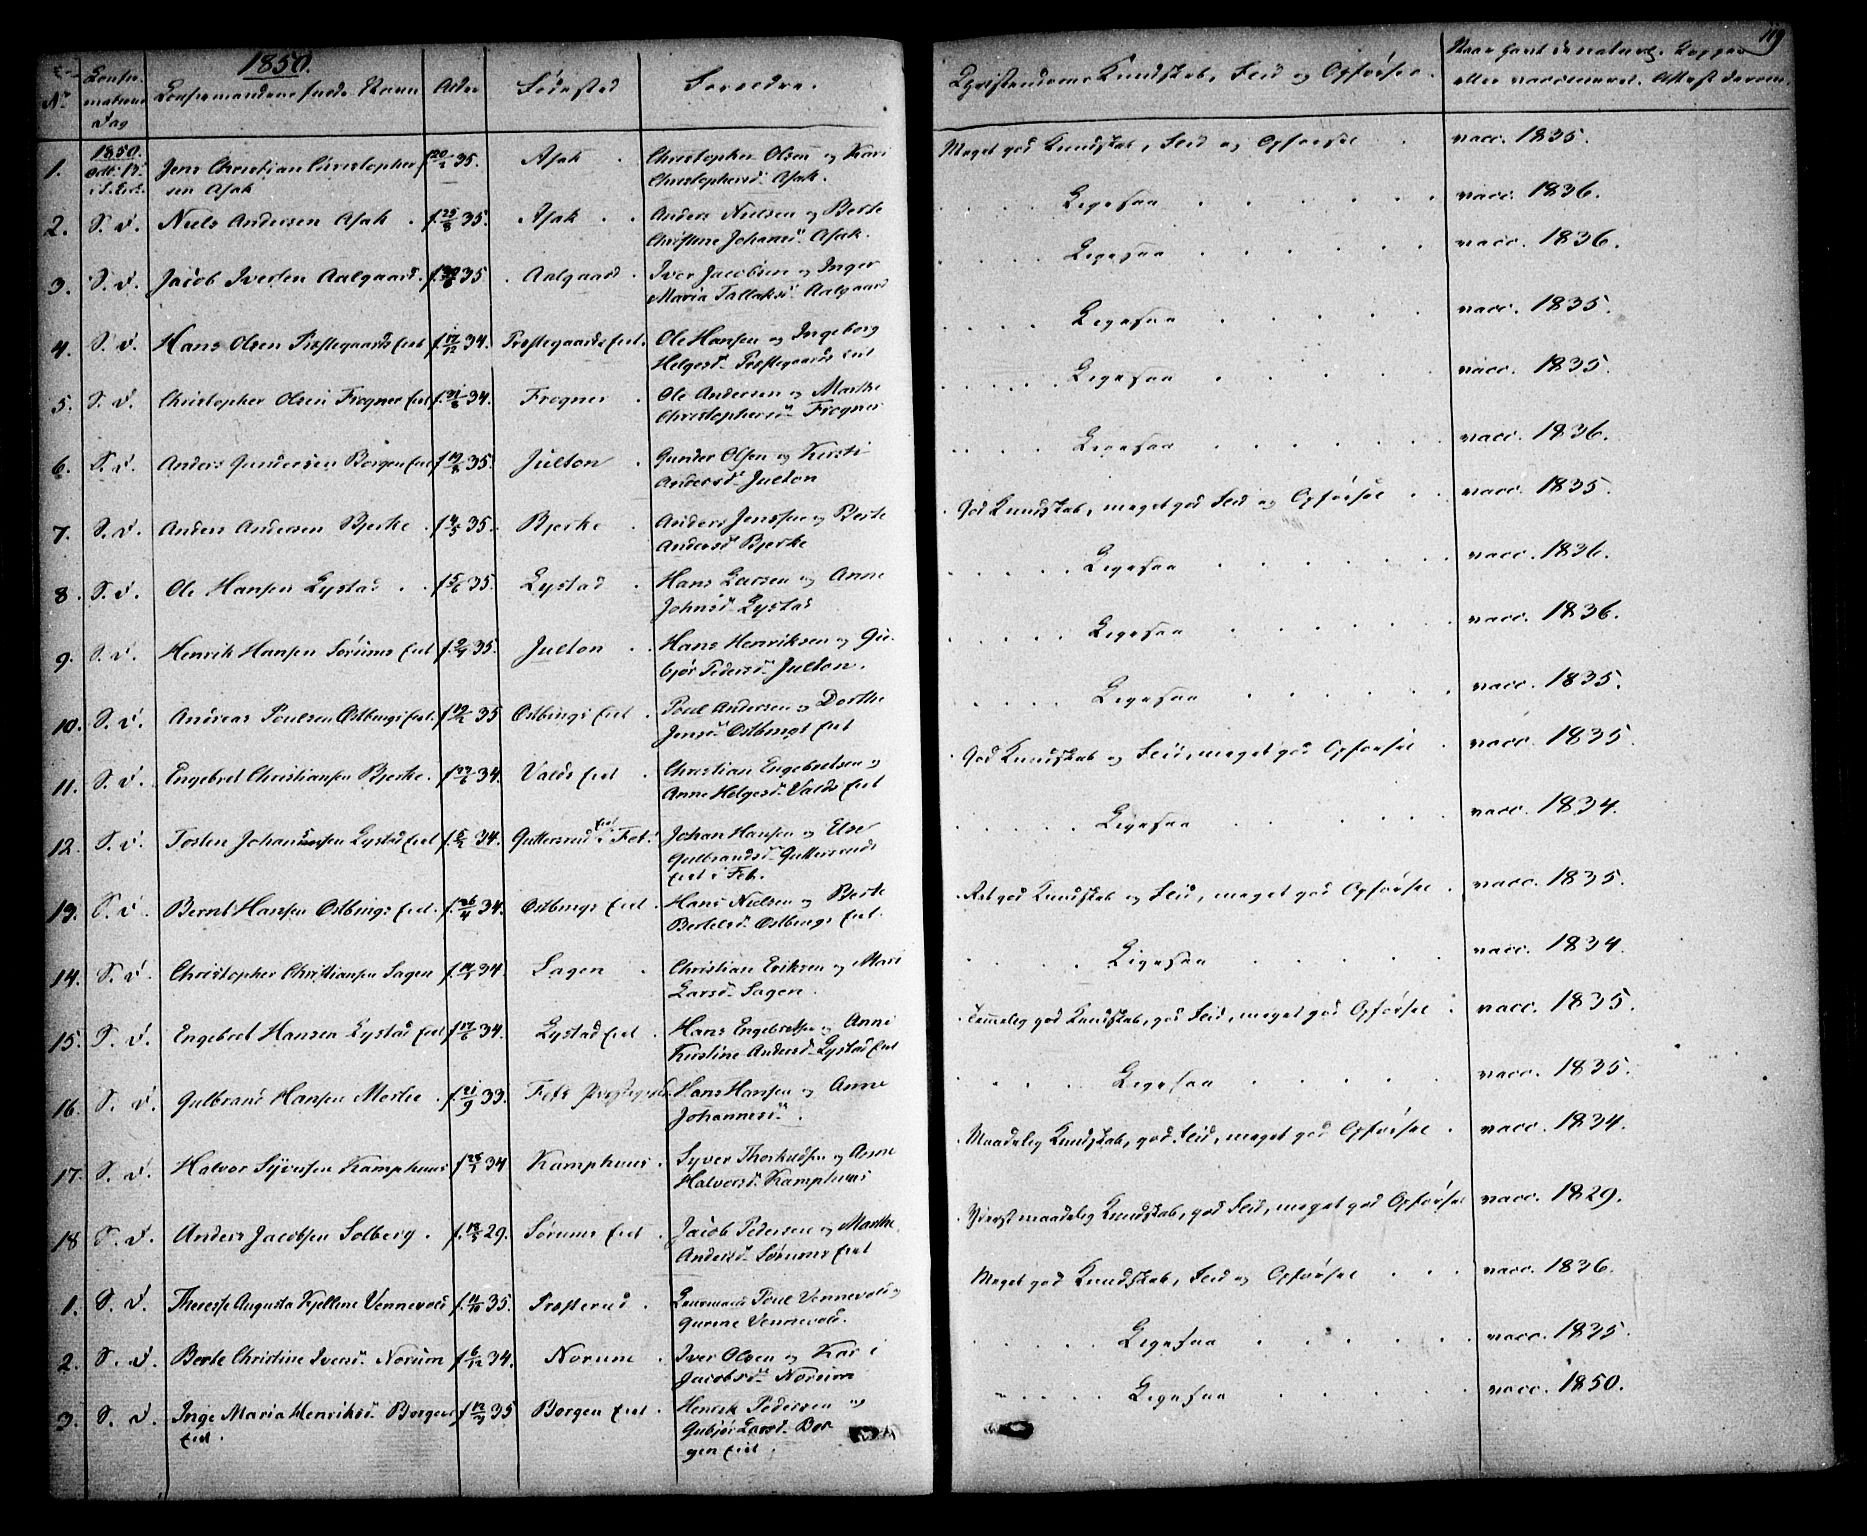 1850.
119
No
Confirmations Dag
Confirmandens fulde Navn
Alder
Fødested
Forældre.
Christendoms Kundskab, Flid og Opførsel.
Naar havt de naturlige Kopper eller vaccineret. Attest derom.
1. 1850. Jens Christian Christophersen Asak 35. Asak Christopher Olsen og Kari Christophersd. Asak. Meget god Kundskab, Flid og Opførsel vacc. 1835.
2. S. D. Niels Andersen Asak f. 25/8 35. Asak Anders Nielsen og Berte Christine Johansd. Asak. Ligesaa vacc. 1836.
3. S. D. Jacob Iversen Aalgaard. 35. Aalgaard. Iver Jacobsen og Inger Maria Tallaksd. Aalgaard Ligesaa vacc. 1836.
4. S. D. Hans Olsen Præstegaards Eiet f. 17/12 34. Præstegaards Eiet. Ole Hansen og Ingeborg Helgesd. Præstegaards Eiet Ligesaa vacc. 1835.
5. S. D. Christopher Olsen Frogner Eiet 34. Frogner Ole Andersen og Marthe Christophersd. Frogner Ligesaa vacc. 1835.
6. S. D. Anders Gundersen Borgen Eiet 35. Julton Gunder Olsen og Kirsti Andersd. Julton Ligesaa vacc. 1836.
7. S. D. Anders Andersen Bjerke 35. Bjerke Anders Jenssen og Berte Andersd. Bjerke God Kundskab, meget god Flid og Opførsel vacc. 1835.
8. S. D. Ole Hansen Lystad f. 5/6 35. Lystad Hans Larsen og Anne Johnsd. Lystad Ligesaa vacc. 1836.
9. S. D. Henrik Hansen Sørums Eiet 35. Julton Hans Henriksen og Gubjør Pedersd. Julton. Ligesaa vacc. 1836.
10. S. D. Andreas Poulsen Ostbings Eiet. 35 Ostbings Eiet Poul Andersen og Dorthe Jensd. Ostbings Eiet Ligesaa vacc. 1835.
11. S. D. Engebret Christiansen Bjerke. 34. Valds Eiet Christian Engebretsen og Anne Helgesd. Valds Eiet God Kundskab og Flid, meget god Opførsel vacc. 1835.
12. S. D. Tosten Johannsen Lystad Eiet 34. Guttersrud Eiet i Fet. Johan Hansen og Else Gulbrandsd. Guttersruds Eiet i Fet. Ligesaa vacc. 1834.
13. S. D. Bernt Hansen Ostbings Eiet f. 26/4 34. Ostbings Eiet Hans Nielsen og Berte Bertelsd. Ostbings Eiet. Ret god Kundskab og Flid, meget god Opførsel vacc. 1835.
14. S. D. Christopher Christiansen Sagen 34. Sagen Christian Eriksen og Mari Larsd. Sagen. Ligesaa vacc. 1834.
15. S. D. Engebret Hansen Lystad Eiet f. 17/6 34. Lystad Eiet Hans Engebretsen og Anne Kirstine Andersd. Lystad Eiet Temmelig god Kundskab, god Flid, meget god Opførsel vacc. 1835.
16. S. D. Gulbrand Hansen Mortie f. 21/9 33. Fets Præstegaard Hans Hansen og Anne Johannesd. Ligesaa vacc. 1835.
17. S. D. Halvor Syversen Kamphuus 34 Kamphuus. Syver Thorkildsen og Anne Halvorsd. Kamphuus Maadelig Kundskab, god Flid, meget god Opførsel vacc. 1834.
18. S. D. Anders Jacobsen Solberg. 29. Sørums Eiet Jacob Pedersen og Marthe Andersd. Sørums Eiet Yderst maadelig Kundskab, god Flid, meget god Opførsel vacc. 1829.
1. S. D. Therese Augusta Kjelline Vennevold 35. Præsterud Lensmand Poul Vennevold og Gurine Vennevold. Meget god Kundskab, Flid og Opførsel vacc. 1836.
2. S. D. Berte Christine Iversd. Norum f. 6/12 34. Norum Iver Olsen og Kari Jacobsd. Norum Ligesaa vacc. 1835.
3. S. D. Inge Maria Henriksd. Borgen Eiet. 35 Borgen Eiet Henrik Pedersen og Gubjør Larsd. Borgen Eiet. Ligesaa vacc. 1850.